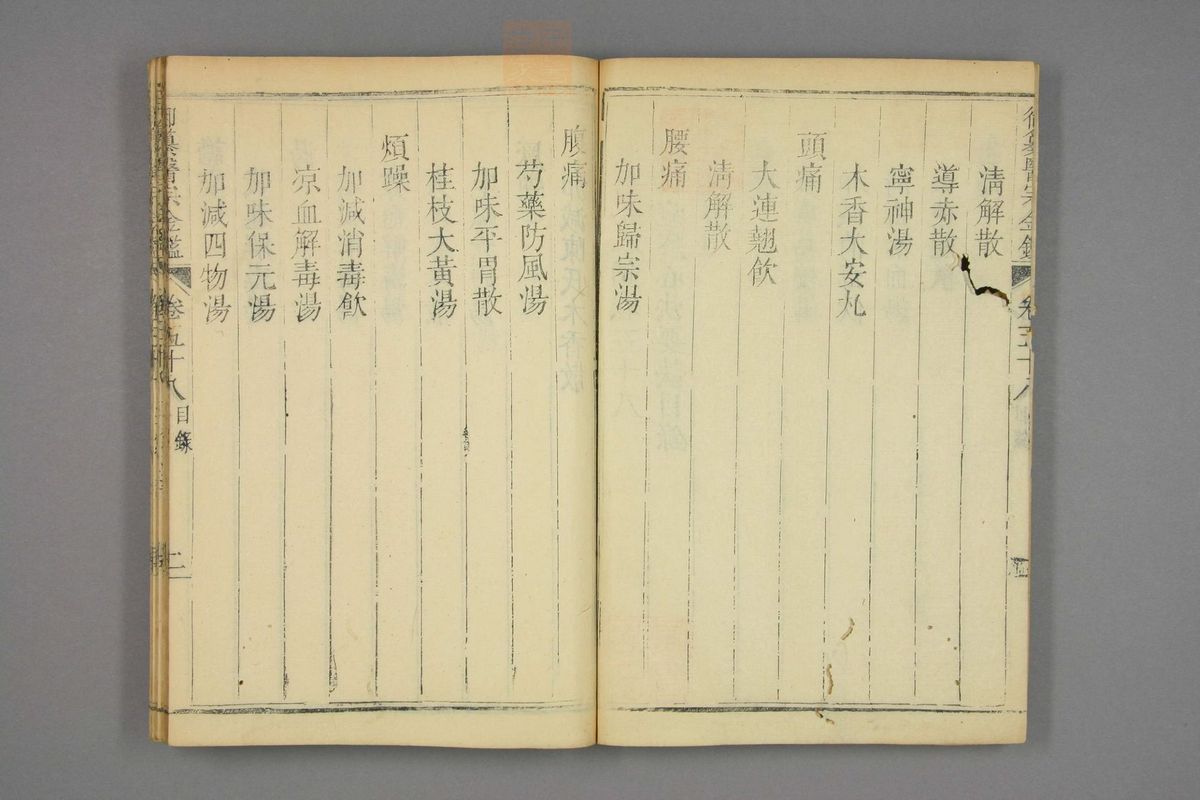 清解散
導赤散
寧神湯
木香大安丸
頭痛
大連翹飲
清解散
腰痛
加味歸宗湯
腹痛
芍藥防風湯
加味平胃散
桂枝大黃湯
煩躁
加減消毒飲
凉血解毒湯
加味保元湯
加減四物湯
御纂醫宗金鑑
卷五十八
目錄
二